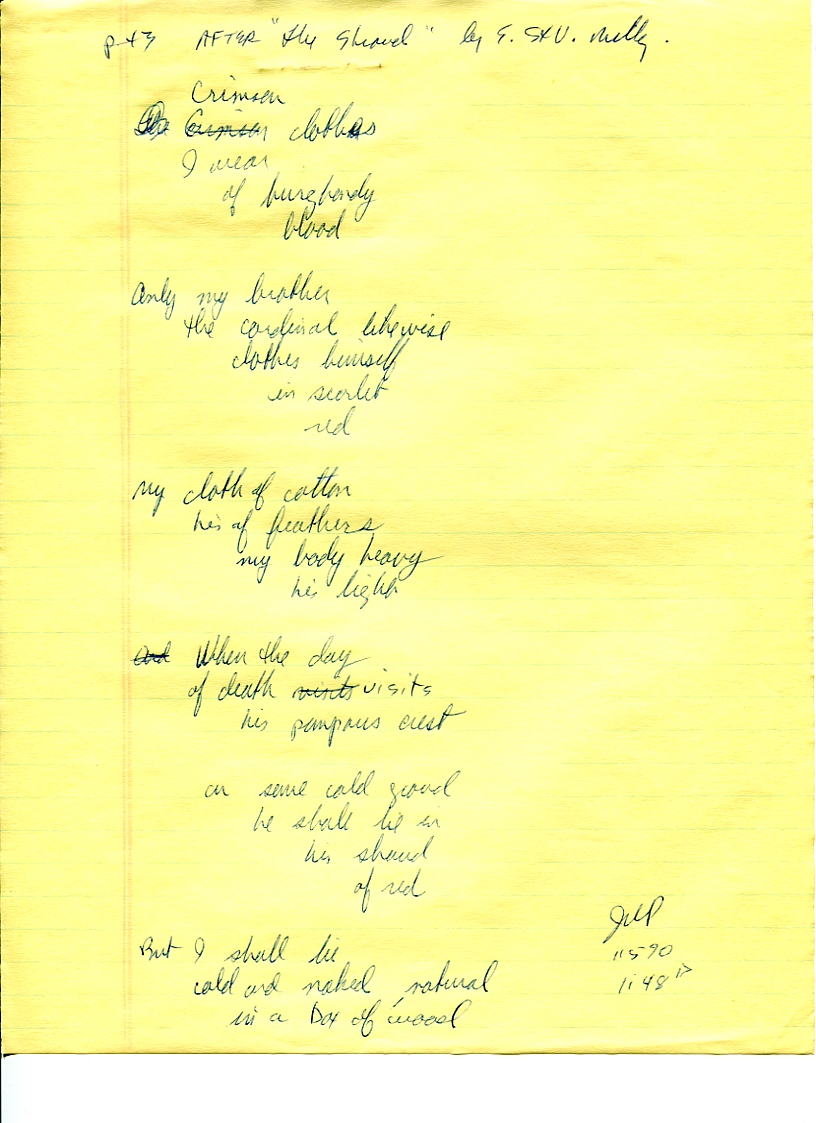 p-43 AFTER "the Shroud" by E. St V. Milly.
Crimson
Crimson clothes
I wear
of burghendy
blood
Only my brother
the cardinal likewise
clothes himself
in scarlet
red
My cloth of cotton
his of feathers
my body heavy
his light
and When the day
of death visits visits
his pompous crest
on some cold groud
he shall lie in
his shroud
of red
But I shall lie
cold and naked natural
in a box of wood
JMP
11590
1:48